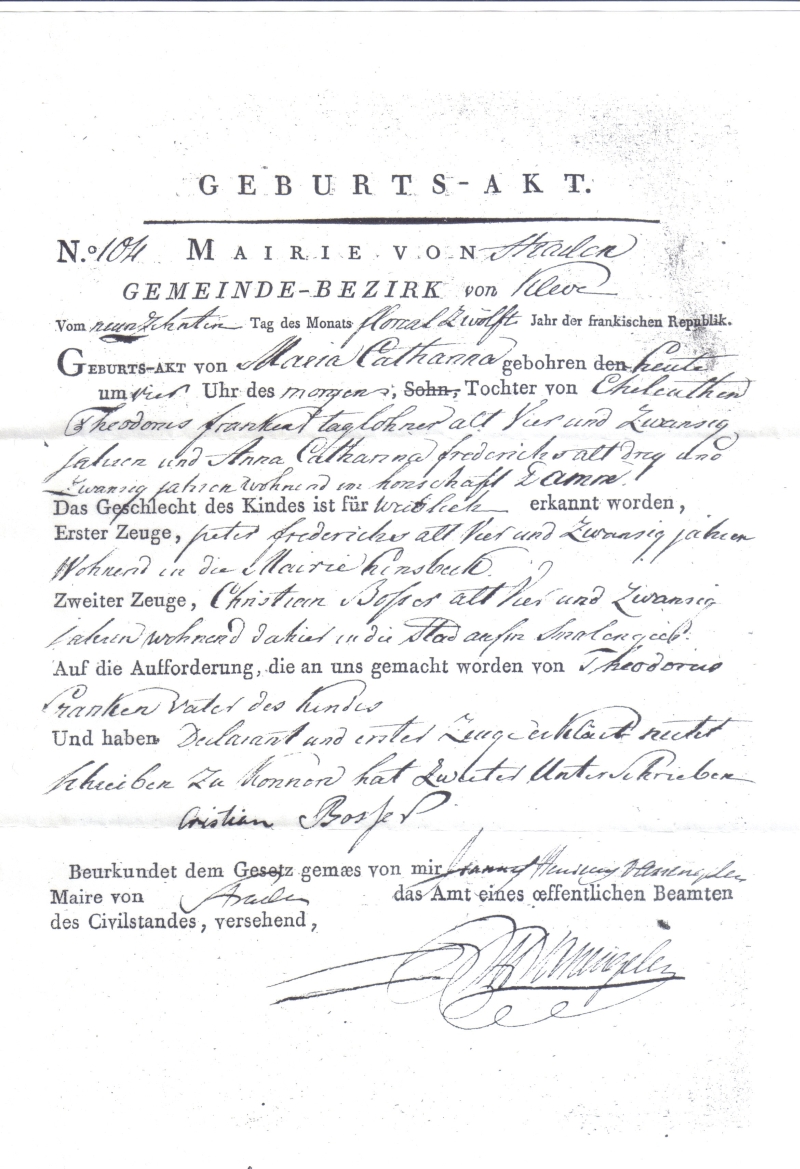 GEBURTS-AKT.
N.º 104 MAIRIE VON Straelen
GEMEINDE-BEZIRK von Kleve
Vom neunzehnten Tag des Monats floreal Zwölft Jahr der frankischen Republik.
GEBURTS-AKT von Maria Catharina gebohren den heute
um vier Uhr des morgens, Sohn, Tochter von Eheleuthen
Theodorus franken taglohner alt Vier und Zwansig
jahren und Anna Catharina frederichs alt drey und
Zwansig jahren wohnend im honschaft Damm.
Das Geschlecht des Kindes ist für weiblich erkannt worden,
Erster Zeuge, peter frederichs alt Vier und Zwansig jahren
Wohnend in die Mairie hinsbeck
Zweiter Zeuge, Christian Bosser alt Vier und Zwansig
jahren wohnend dahier in die Stad
Auf die Aufforderung, die an uns gemacht worden von Theodorus
Franken Vater des Kindes
Und haben Declarant und erster Zeuge erklärt nicht
schreiben Zu konnen hat Zweiter Unterschrieben
Cristian Bosser
Beurkundet dem Gesetz gemæs von mir
Maire von Straelen das Amt eines œffentlichen Beamten
des Civilstandes, versehend,